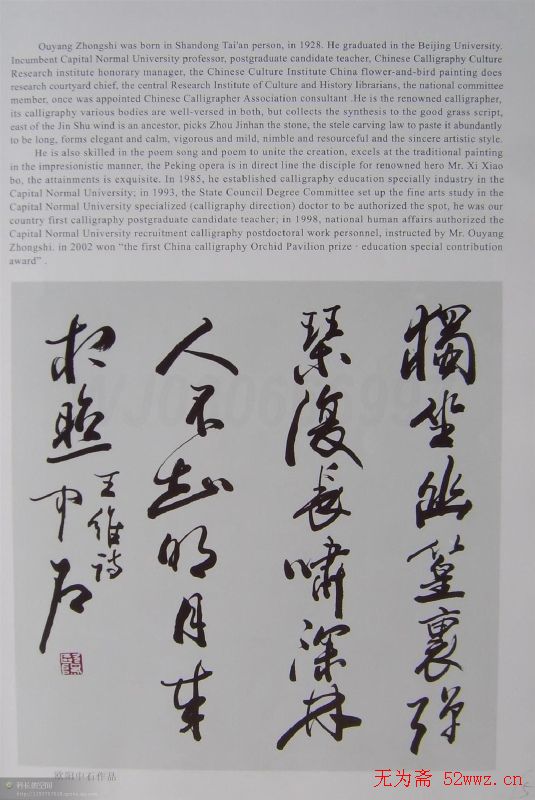 Ouyang Zhongshi was born in Shandong Tai'an person, in 1928. He graduated in the Beijing University.
Incumbent Capital Normal University professor, postgraduate candidate teacher, Chinese Calligraphy Culture
Research institute honorary manager, the Chinese Culture Institute China flower-and-bird painting does
research courtyard chief, the central Research Institute of Culture and History librarians, the national committee
member, once was appointed Chinese Calligrapher Association consultant .He is the renowned calligrapher,
its calligraphy various bodies are well-versed in both, but collects the synthesis to the good grass script,
east of the Jin Shu wind is an ancestor, picks Zhou Jinhan the stone, the stele carving law to paste it abundantly
to be long, forms elegant and calm, vigorous and mild, nimble and resourceful and the sincere artistic style.
He is also skilled in the poem song and poem to unite the creation, excels at the traditional painting
in the impresionistic manner, the Peking opera is in direct line the disciple for renowned hero Mr. Xi Xiao
bo, the attainments is exquisite. In 1985, he established calligraphy education specially industry in the
Capital Normal University; in 1993, the State Council Degree Committee set up the fine arts study in the
Capital Normal University specialized (calligraphy direction) doctor to be authorized the spot, he was our
country first calligraphy postgraduate candidate teacher; in 1998, national human affairs authorized the
Capital Normal University recruitment calligraphy postdoctoral work personnel, instructed by Mr. Ouyang
Zhongshi. in 2002 won “the first China calligraphy Orchid Pavilion prize · education special contribution
award” .
獨坐幽篁裏彈
琴復長嘯深林
人不知明月來
相照
王維詩
中石
欧阳中石作品
科长的空间
无为斋 52wwz.cn